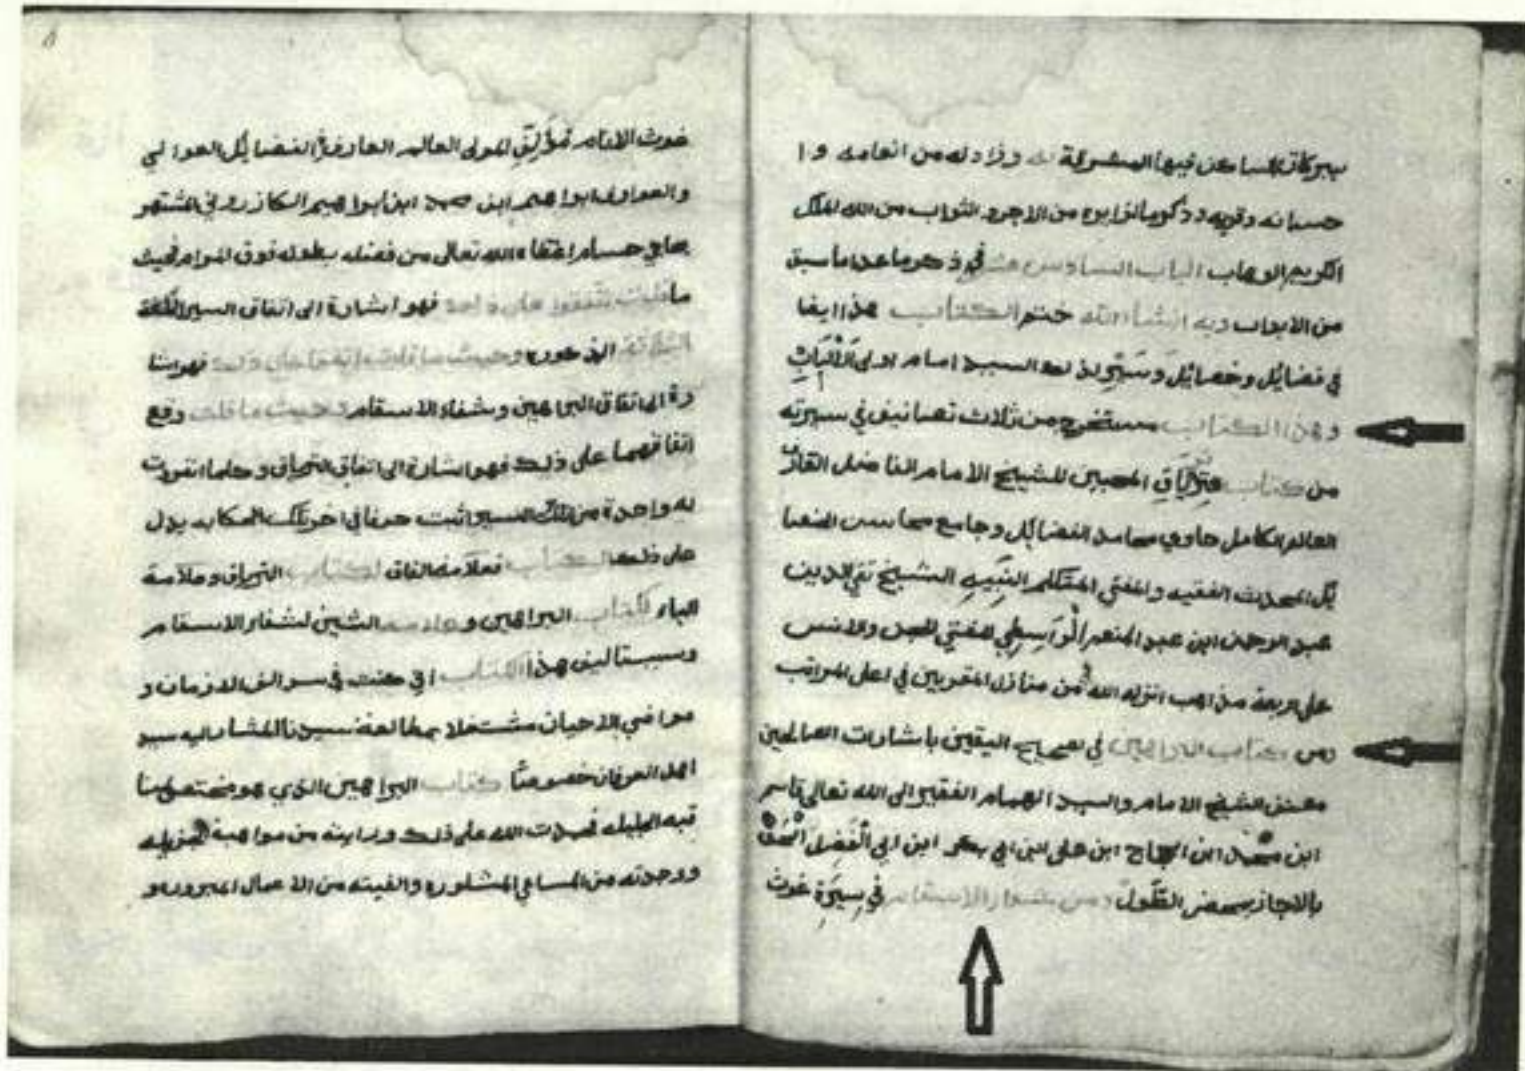 ببركاته المساكن فيها المشرفة له وزاد له من انعامه وا
حسانه وقربه وذكر ما لزايره من الاجر والثواب من الله الملك
الكريم الوهاب الباب السادس عشر في ذكر ما عدا ما سبق
من الابواب وبه انشاء الله ختم الكتاب هذا ايضا
في فضايل وخصايل وسير لهذا السيد امام اولى الالباب
وهذا الكتاب مستخرج من ثلاث تصانيف في سيرته
من كتاب ترياق المحبين للشيخ الامام الفاضل القاري
العالم الكامل حاوي محامد الفضايل وجامع محاسن الخصا
يل المحدث الفقيه والمفتي المتكلم النبيه الشيخ تقي الدين
عبد الرحمن ابن عبد المنعم الواسطي المفتي للجن والانس
على اربعة مذاهب انزله الله من منازل المقربين في اعلى المراتب
ومن كتاب البراهين في تصحيح اليقين باشارات الصالحين
مصنف الشيخ الامام والسيد الهمام الفقير الى الله تعالى قاسم
ابن محمد ابن الحجاج ابن علي ابن ابي بكر ابن ابي الفضل
بالانجاز بمحض الطول ومن شفاء الاسقام في سيرة غوث
غوث الانام مؤلف المولى العالم العارف الفضايل العوالي
والعوارف ابراهيم ابن محمد ابن ابراهيم الكازروني المشتهر
بحاجي حسام اعطاه الله تعالى من فضله بطوله فوق المرام فحيث
ما قلت متفقون على واحد فهو اشارة الى اتفاق السير
الثلاثة المذكورة وحيث ما قلت اتفقا على ذلك فهو اشا
رة الى اتفاق البراهين وشفاء الاسقام وحيث ما قلت وقع
اتفاقهما على ذلك فهو اشارة الى اتفاق الترياق وكلما انفردت
به واحدة من تلك السير اثبت حرفا في اخر تلك الحكاية يدل
على ذلك الكتاب فعلامة القاف لكتاب الترياق وعلامة
الباء لكتاب البراهين وعلامة الشين لشفاء الاسقام
وسبب تاليف هذا الكتاب اني كنت في سوالف الازمان و
مواضي الاحيان مشتغلا بمطالعة سيدنا المشار اليه سيد
اهل العرفان خصوصا كتاب البراهين الذي هو مختص بمنا
قبه الجليله فحمدت الله على ذلك ورايته من مواهبه الجزيله
ووجدته من المساعي المشكوره والفيته من الاعمال المبروره و